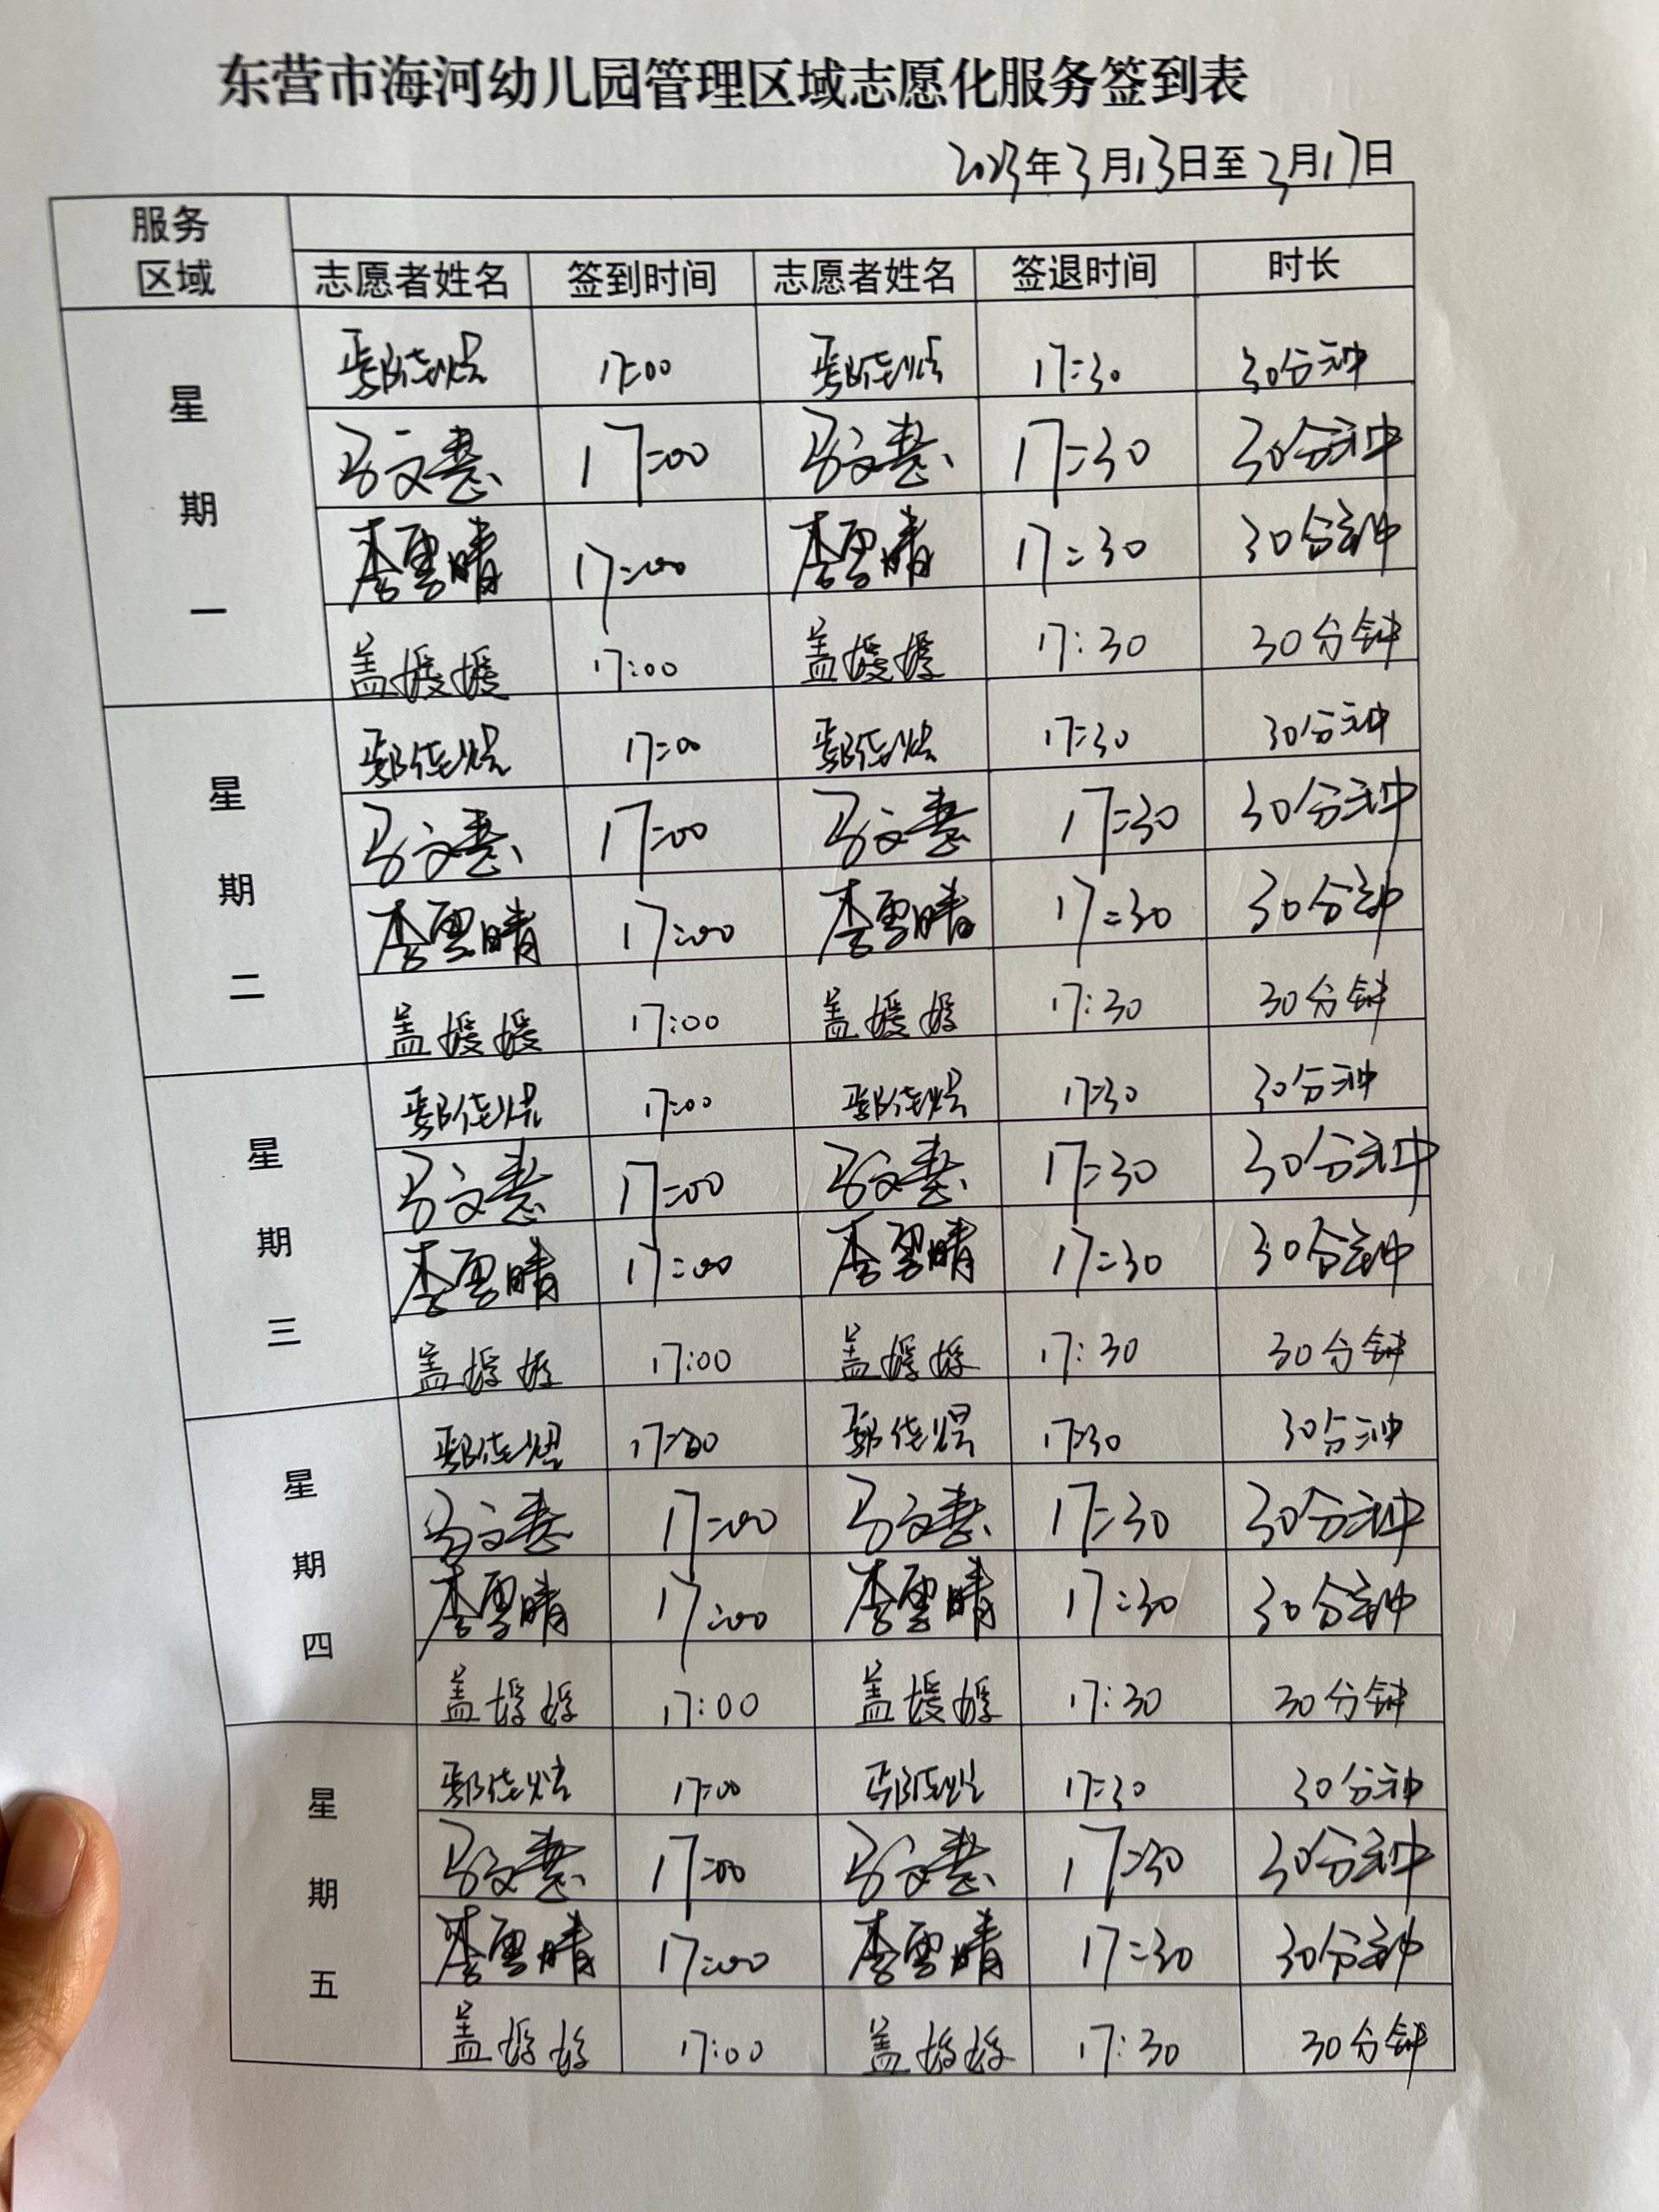 东营市海河幼儿园管理区域志愿化服务签到表
2023年3月13日至3月17日
服务区域
志愿者姓名 签到时间 志愿者姓名 签退时间 时长
星期一
17:00 17:30 30分钟
马文慧 17:00 马文慧 17:30 30分钟
李雪晴 17:00 李雪晴 17:30 30分钟
盖媛媛 17:00 盖媛媛 17:30 30分钟
星期二
17:00 17:30 30分钟
马文慧 17:00 马文慧 17:30 30分钟
李雪晴 17:00 李雪晴 17:30 30分钟
盖媛媛 17:00 盖媛媛 17:30 30分钟
星期三
17:00 17:30 30分钟
马文慧 17:00 马文慧 17:30 30分钟
李雪晴 17:00 李雪晴 17:30 30分钟
盖媛媛 17:00 盖媛媛 17:30 30分钟
星期四
17:00 17:30 30分钟
马文慧 17:00 马文慧 17:30 30分钟
李雪晴 17:00 李雪晴 17:30 30分钟
盖媛媛 17:00 盖媛媛 17:30 30分钟
星期五
17:00 17:30 30分钟
马文慧 17:00 马文慧 17:30 30分钟
李雪晴 17:00 李雪晴 17:30 30分钟
盖媛媛 17:00 盖媛媛 17:30 30分钟